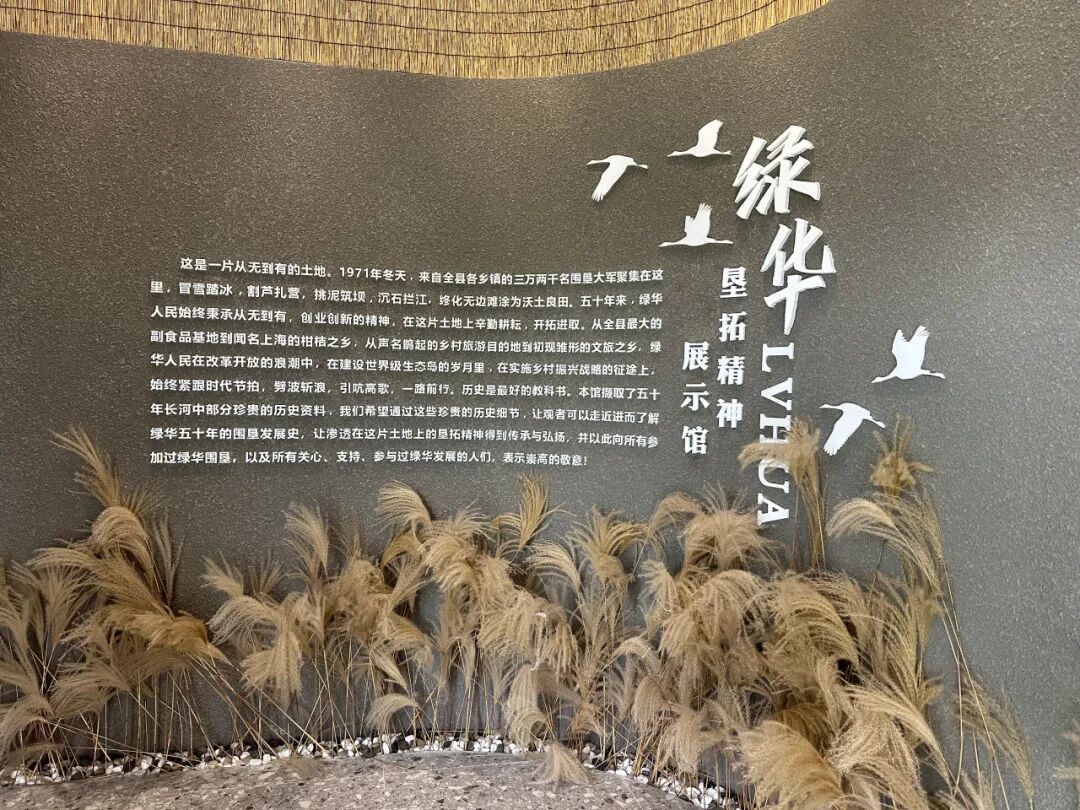 绿华
LVHUA
垦拓精神
展示馆
这是一片从无到有的土地。1971年冬天，来自全县各乡镇的三万两千名围垦大军聚集在这
里，冒雪踏冰，割芦扎营，挑泥筑坝，沉石拦江，终化无边滩涂为沃土良田。五十年来，绿华
人民始终秉承从无到有，创业创新的精神，在这片土地上辛勤耕耘，开拓进取。从全县最大的
副食品基地到闻名上海的柑桔之乡，从声名鹊起的乡村旅游目的地到初现雏形的文旅之乡，绿
华人民在改革开放的浪潮中，在建设世界级生态岛的岁月里，在实施乡村振兴战略的征途上，
始终紧跟时代节拍，劈波斩浪，引吭高歌，一路前行。历史是最好的教科书。本馆撷取了五十
年长河中部分珍贵的历史资料，我们希望通过这些珍贵的历史细节，让观者可以走近进而了解
绿华五十年的围垦发展史，让渗透在这片土地上的垦拓精神得到传承与弘扬，并以此向所有参
加过绿华围垦，以及所有关心、支持、参与过绿华发展的人们，表示崇高的敬意！